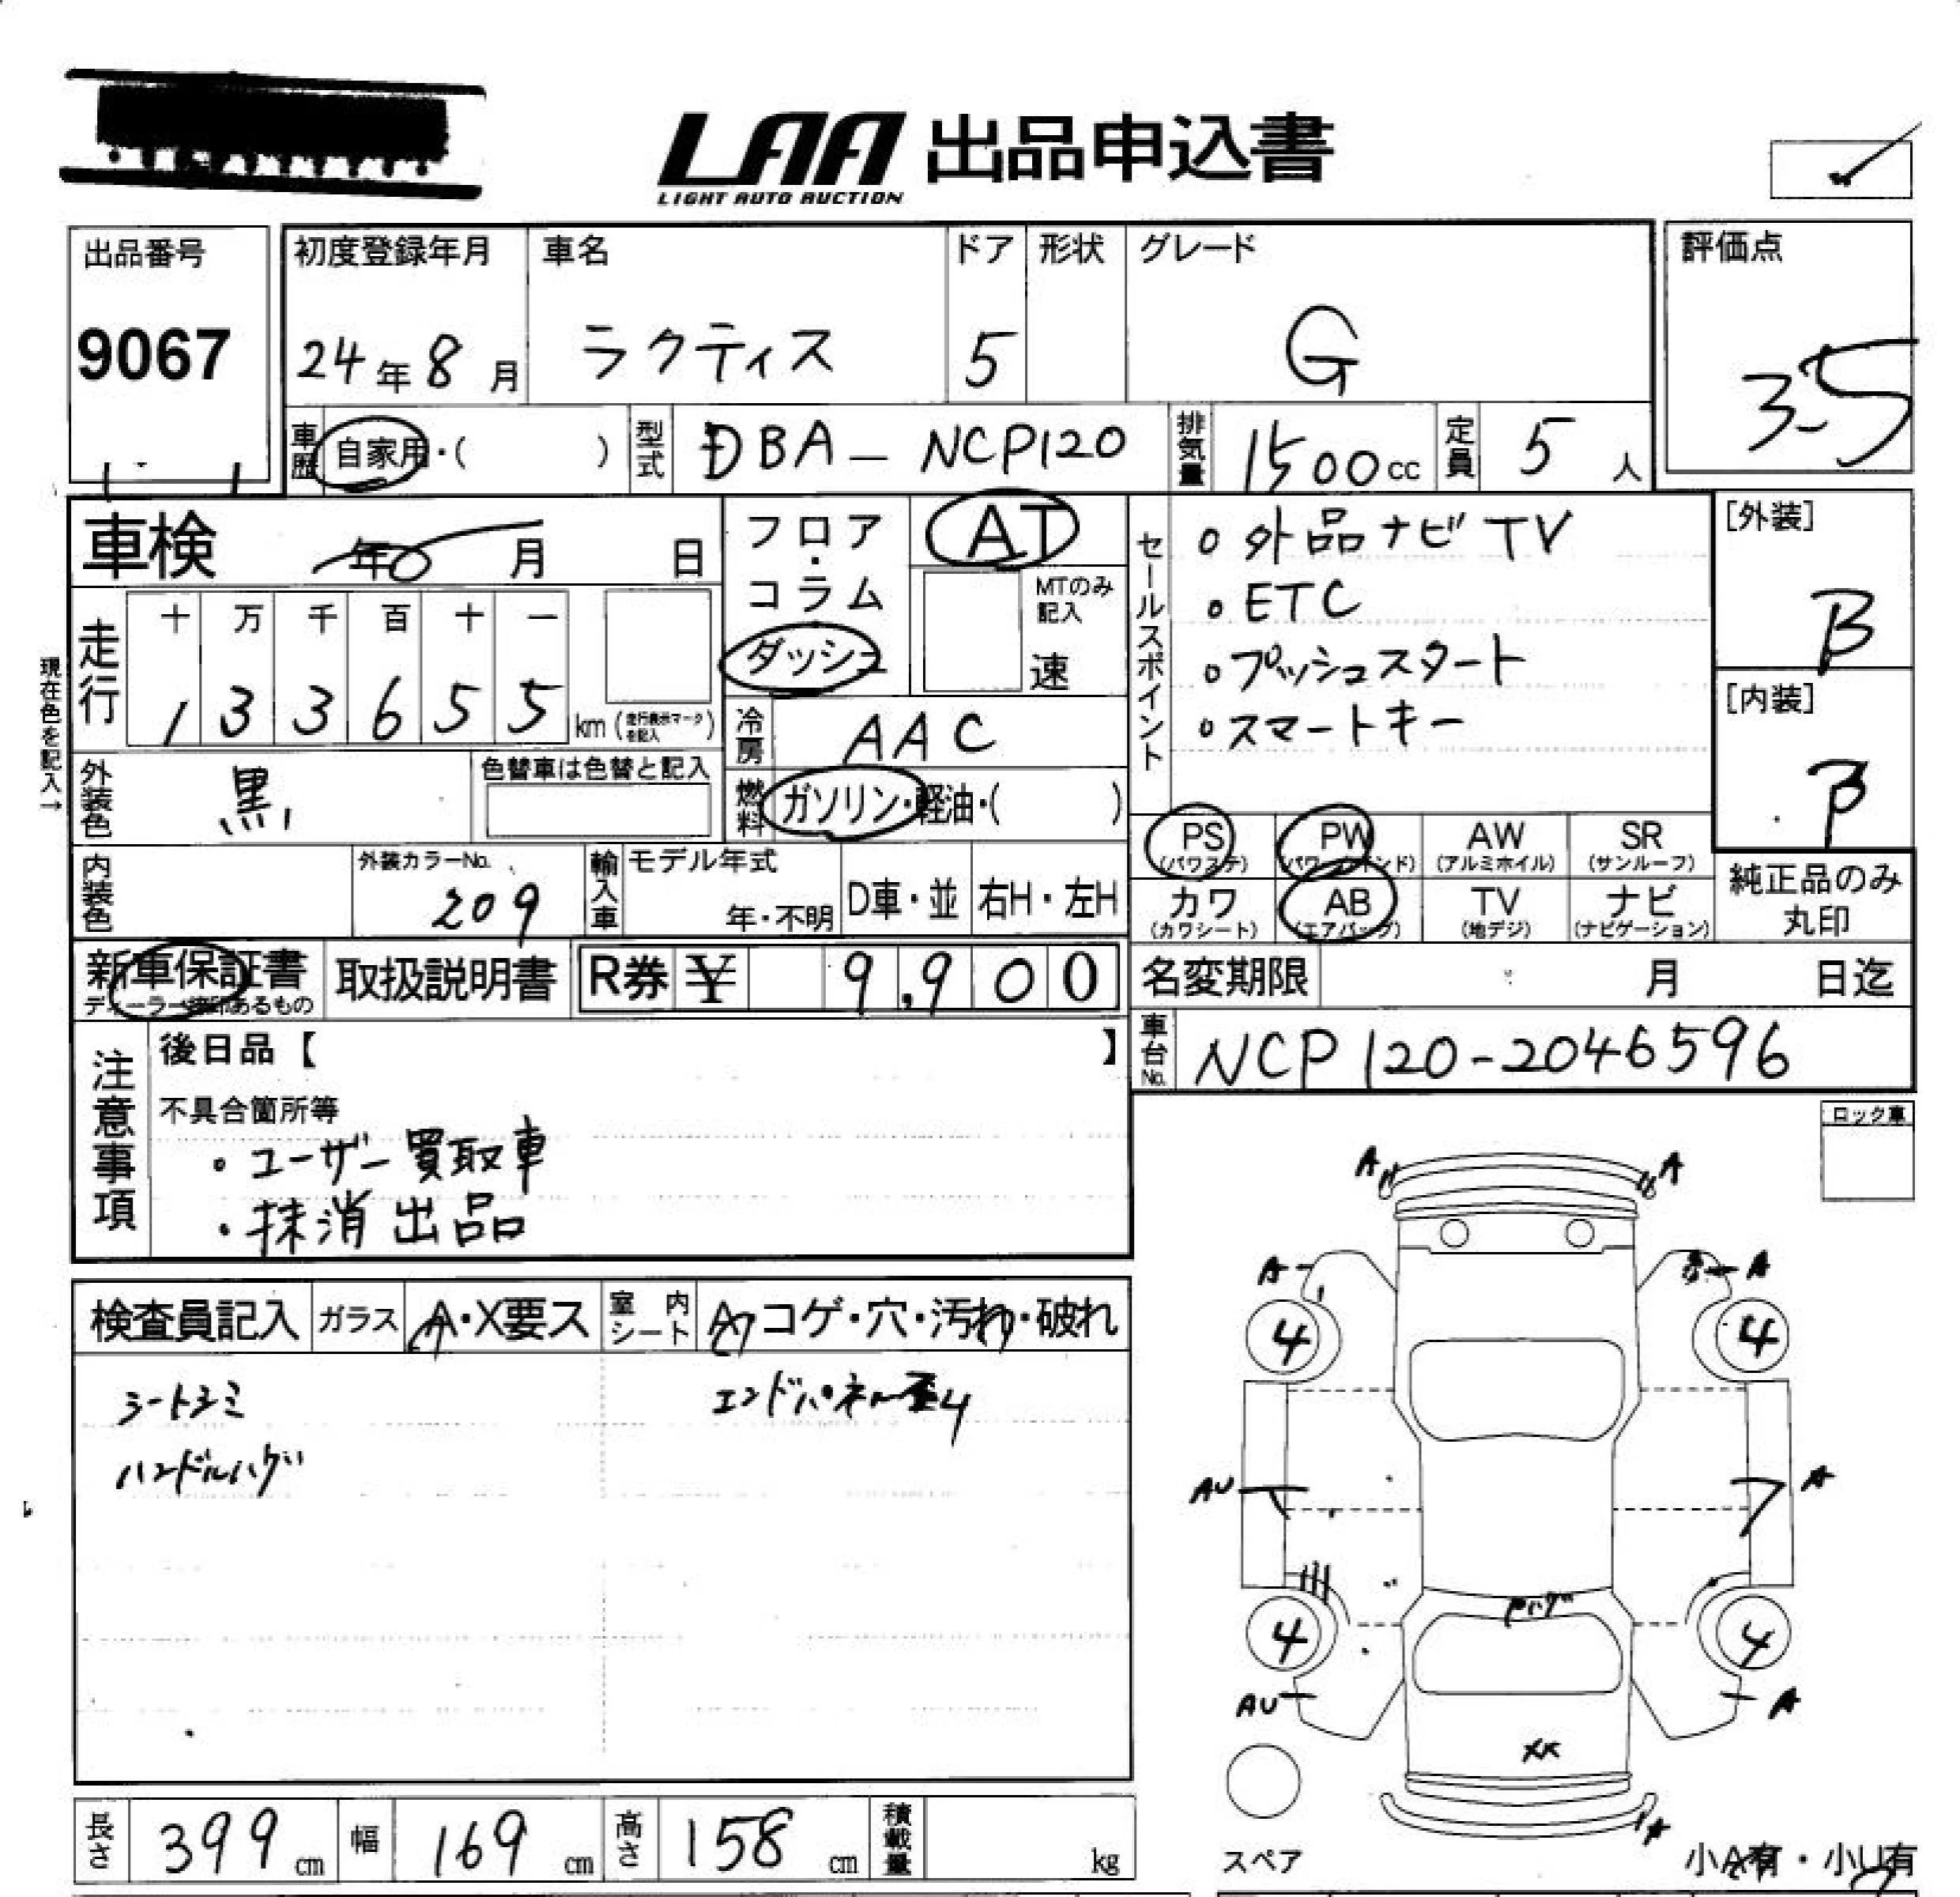 LAA 出品申込書
LIGHT AUTO AUCTION
出品番号
9067
初度登録年月
24年8月
車名
ラクティス
ドア
5
形状
グレード
G
評価点
3.5
車歴 自家用・( )
型式 DBA-NCP120
排気量 1500cc
定員 5人
車検 年 月 日
フロア・コラム
ダッシュ
AT
MTのみ記入
速
セールスポイント
・外品ナビTV
・ETC
・プッシュスタート
・スマートキー
[外装]
B
[内装]
B
現在色を記入→
走行
十 万 千 百 十 一
1 3 3 6 5 5 km (走行表示マークを記入)
冷房 AAC
外装色 黒
色替車は色替と記入
燃料 ガソリン・軽油・( )
PS (パワステ)
PW (パワーウインド)
AW (アルミホイル)
SR (サンルーフ)
カワ (カワシート)
AB (エアバッグ)
TV (地デジ)
ナビ (ナビゲーション)
純正品のみ丸印
内装色
外装カラーNo.
209
輸入車 モデル年式
年・不明
D車・並
右H・左H
新車保証書
取扱説明書
R券 ¥ 9,900
名変期限 月 日迄
車台No. NCP120-2046596
注意事項
後日品【 】
不具合箇所等
・ユーザー買取車
・抹消出品
ロック車
検査員記入
ガラス A・X要ス
室内シート A コゲ・穴・汚れ・破れ
シートシミ
ハンドルハゲ
エンドパネル歪4
A A
A A
4 4
AU A
4 4
Pハゲ
AU A
XX
長さ 399cm
幅 169cm
高さ 158cm
積載量 kg
スペア
小A有・小U有